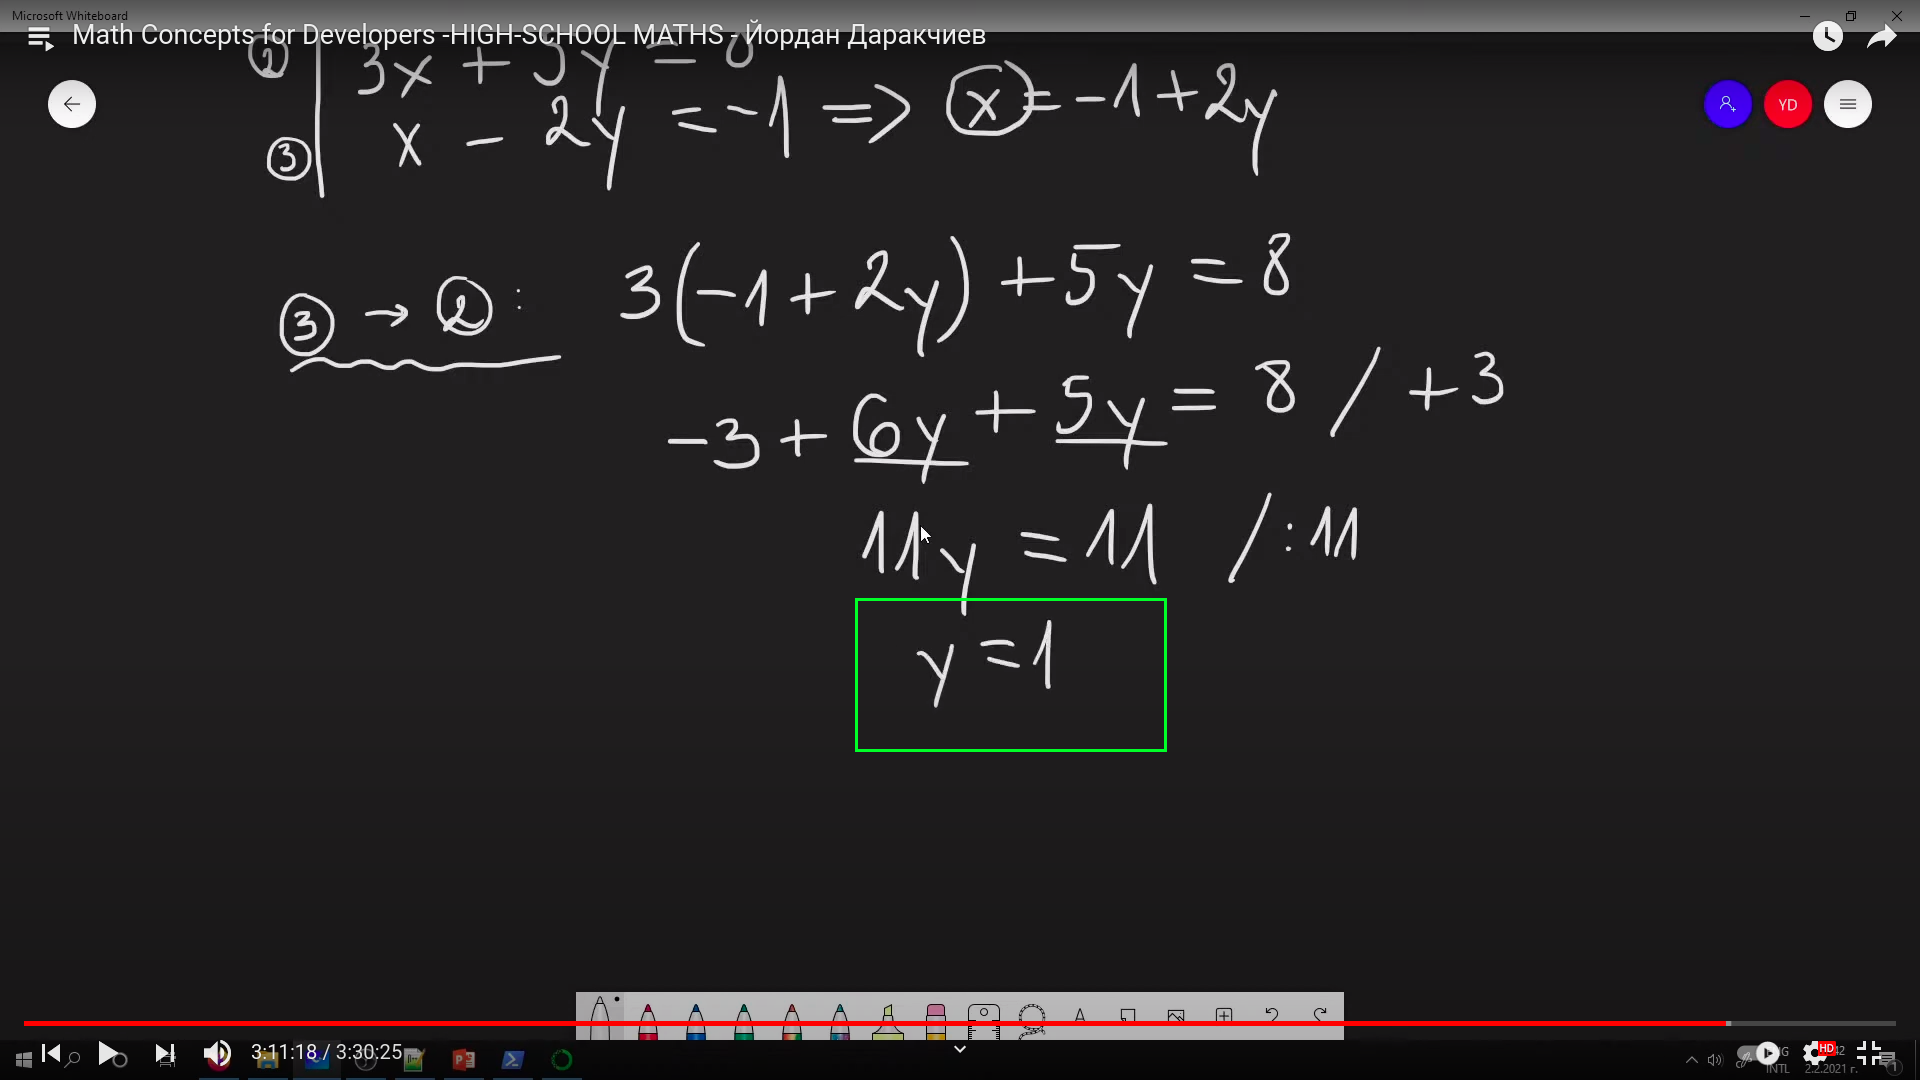 Microsoft Whiteboard
Math Concepts for Developers -HIGH-SCHOOL MATHS - Йордан Даракчиев
② 3x + 5y = 8
③ x - 2y = -1 => x = -1 + 2y
YD
③ → ② : 3(-1 + 2y) + 5y = 8
-3 + 6y + 5y = 8 / +3
11y = 11 / :11
y = 1
3:11:18 / 3:30:25
HD
INTL
2.2.2021 г.
1